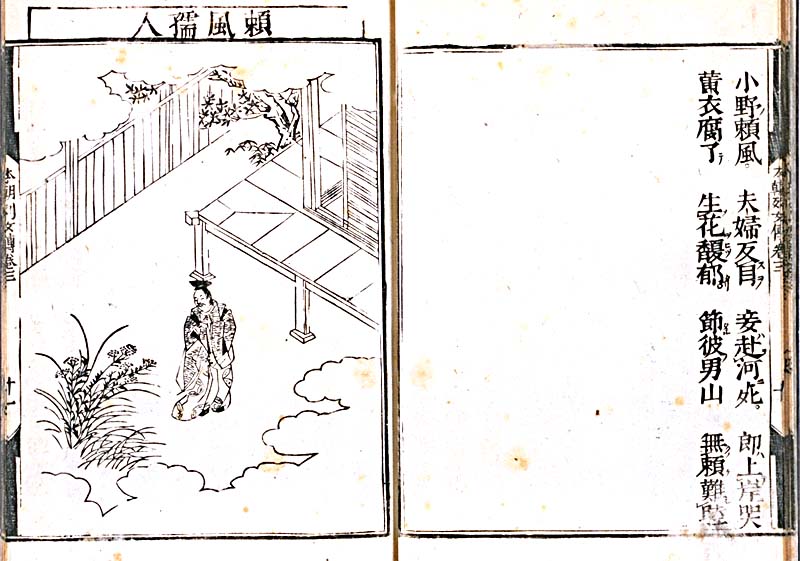 小野頼風 夫婦反目 妾赴河死 郎上岸哭
黄衣腐了 生花馥郁 節彼男山 無頼難
頼風孺人
本朝列女傳卷三
十一